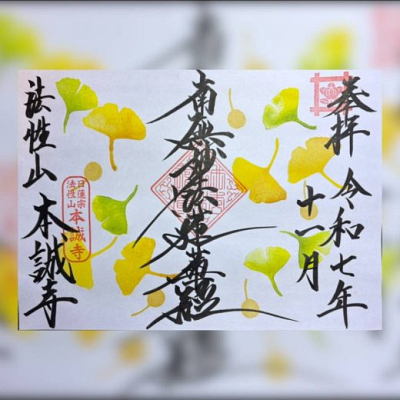 奉拝 令和七年
十一月
南無妙法蓮華経
法性山 本誠寺
日蓮宗
法性山
本誠寺